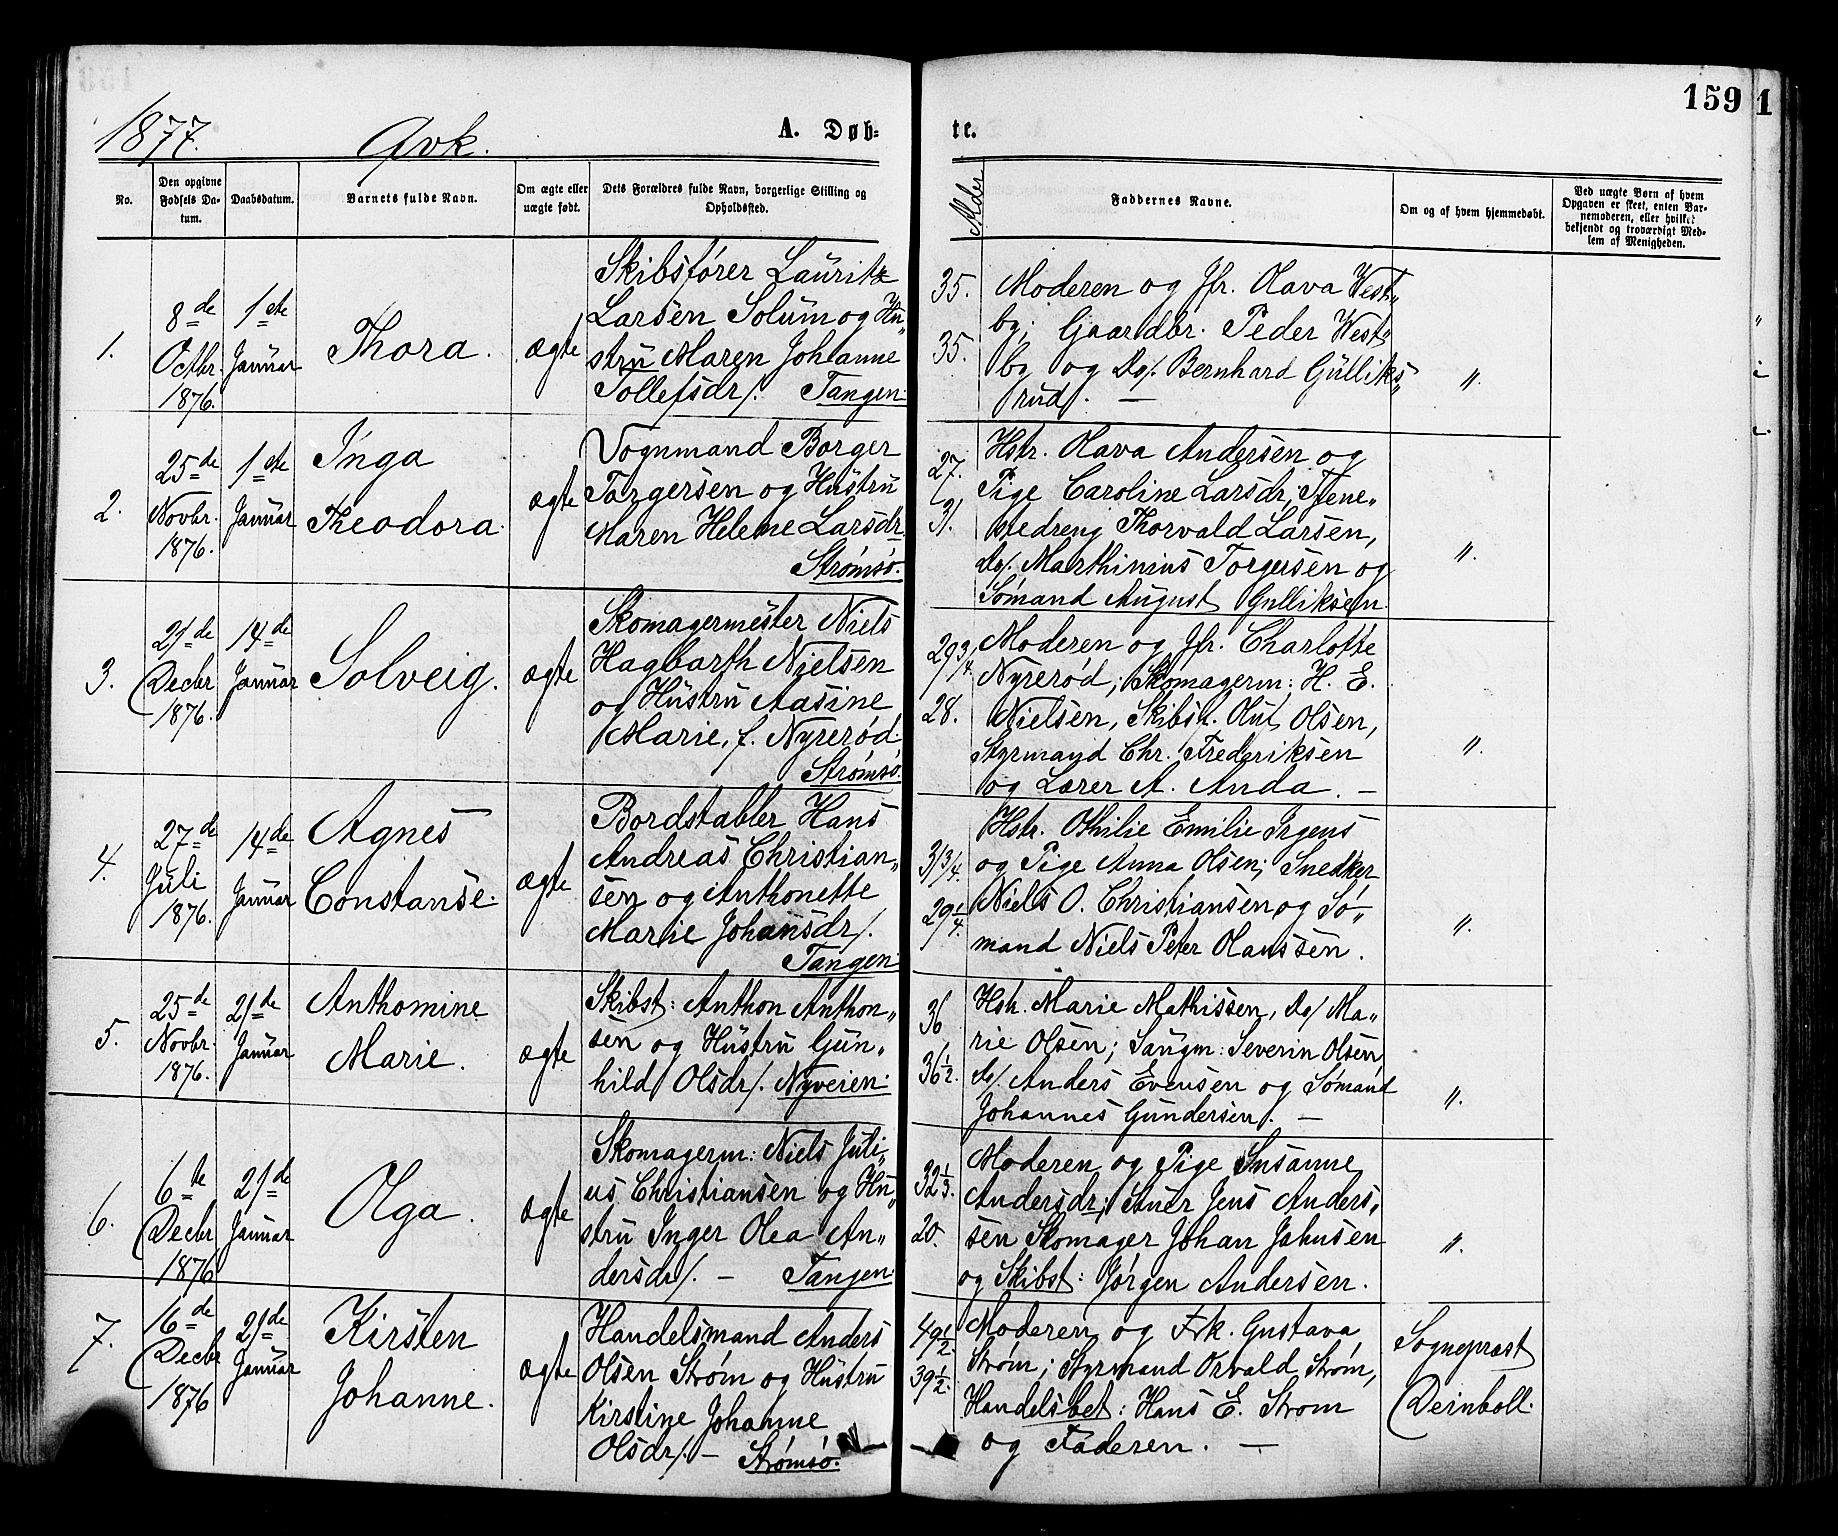 159
1
1877.
Qvk.
A. Døb-
te.
No.
Den opgivne Fødsels Da-
tum.
Daabsdatum.
Barnets fulde Navn.
Om ægte eller
uægte født.
Dets Forældres fulde Navn, borgerlige Stilling og
Opholdssted.
Alder
Faddernes Navne.
Om og af hvem hjemmedøbt.
Ved uægte Børn af hvem
Opgaven er skeet, enten Bar-
nemoderen, eller hvilket
bekjendt og troværdigt Med-
lem af Menigheden.
1.
8de
Octbr.
1876.
1ste
Januar
Thora.
ægte
Skibsfører Lauritz
Larsen Solum og Hu„
stru Maren Johanne
Tollefsdr/. Tangen.
35.
35.
Moderen og Jfr. Olava West„
by; Gaardbr. Peder West„
by og Do/. Bernhard Gulliks„
rud/. —
〃.
2.
25de
Novbr.
1876.
1ste
Januar
Inga
Theodora.
ægte
Vognmand Borger
Torgersen og Hustru
Maren Helene Larsdr
Strømsø.
27.
31.
Hstr. Olava Andersen og
Pige Caroline Larsdr; Tjene„
stedreng Thorvald Larsen,
do/. Marthinius Torgersen og
Sømand August Gulliksen.
〃.
3.
21de
Decbr
1876.
14de
Januar
Solveig.
ægte
Skomagermester Niels
Hagbarth Nielsen
og Hustru Aasine
Marie, f. Nyrerød.
Strømsø.
29 3/4.
28.
Moderen og Jfr. Charlotte
Nyrerød; Skomagerm: H. E.
Nielsen, Skibst. Oluf Olsen,
Styrmand Chr. Frederiksen
og Lærer A. Anda. —
〃.
4.
27de
Juli
1876.
14de
Januar
Agnes
Constanse.
ægte
Bordstabler Hans
Andreas Christian„
sen og Anthonette
Marie Johansdr/.
Tangen.
31 3/4.
29 1/4.
Hstr. Othilie Emilie Irgens
og Pige Anna Olsen; Snedker
Niels O. Christiansen og Sø„
mand Niels Peter Hanssen.
〃.
5.
25de
Novbr.
1876.
21de
Januar
Anthomine
Marie.
ægte
Skibst: Anthon Anthon„
sen og Hustru Gun„
hild Olsdr/. Nyveien.
36
36 1/2.
Hstr. Marie Mathissen, Do/ Ma„
rie Olsen; Saugm: Severin Olsen,
do/. Anders Evensen og Sømand
Johannes Gundersen/. —
〃.
6.
6de
Decbr
1876
21de
Januar
Olga.
ægte
Skomagerm: Niels Juli„
us Christiansen og Hu„
stru Inger Olea An„
dersdr/. — Tangen.
32 1/3.
20.
Moderen og Pige Susanne
Andersdr; Stuer Jens Anders„
sen Skomager Johan Johnsen
og Skibst: Jørgen Andersen.
〃.
7.
16de
Decbr
1876
21de
Januar
Kirsten
Johanne.
ægte
Handelsmand Anders
Olsen Strøm og Hustru
Kirstine Johanne
Olsdr/. — Strømsø.
49 1/2.
39 1/2.
Moderen og Frk. Gustava
Strøm; Styrmand Osvald Strøm,
Handelsbet: Hans E. Strøm
og Faderen. —
Sognepræst
Deinboll.